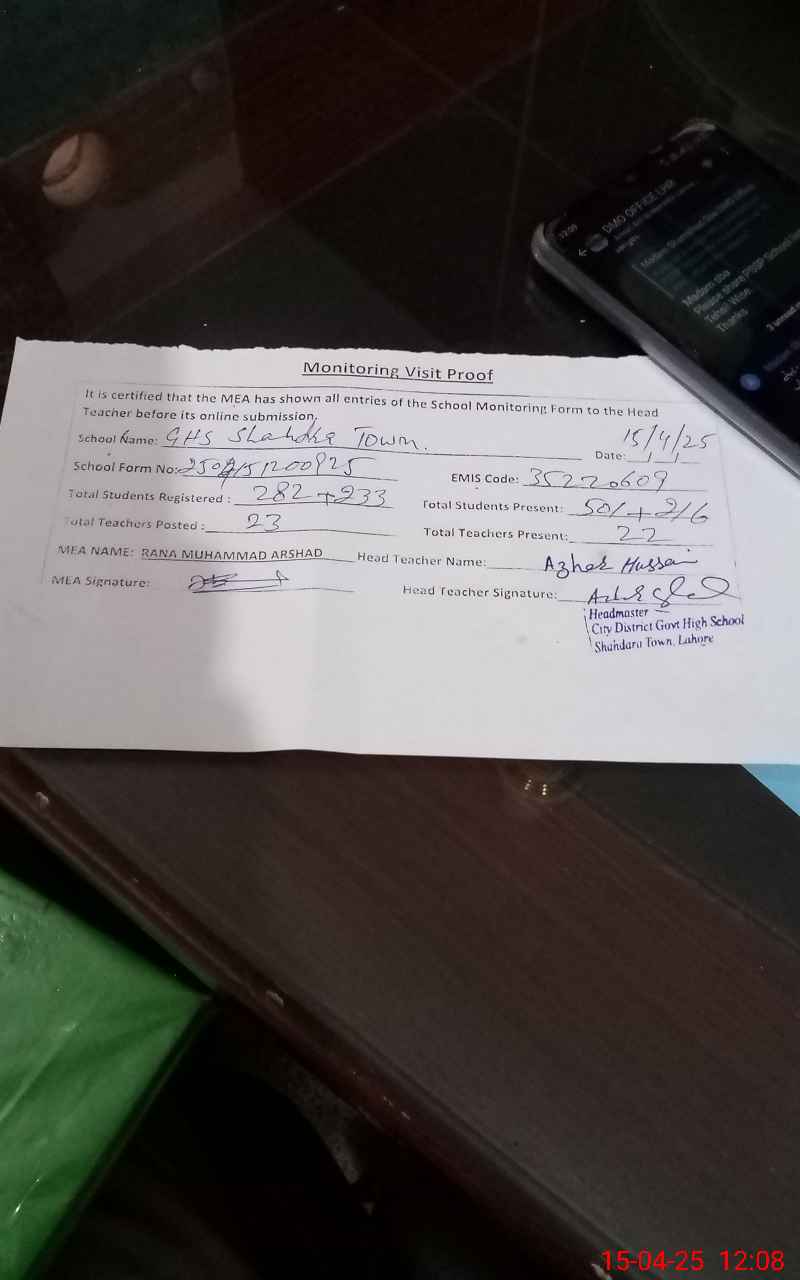 12:09
DMO OFFICE LHR
Madam sba
Please share PSSP School
Tehsil Wise
Thanks
Monitoring Visit Proof
It is certified that the MEA has shown all entries of the School Monitoring Form to the Head
Teacher before its online submission.
School Name: GHS Shahdra Town. Date: 15/4/25
School Form No: EMIS Code: 35220609
Total Students Registered : 282+233 Total Students Present: 501+216
Total Teachers Posted : 23 Total Teachers Present: 22
MEA NAME: RANA MUHAMMAD ARSHAD Head Teacher Name: Azhar Hussain
MEA Signature: Head Teacher Signature:
Headmaster
City District Govt High School
Shahdara Town, Lahore
15-04-25 12:08